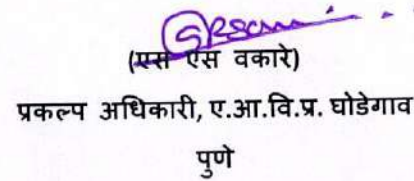 (एस एस वकारे)
प्रकल्प अधिकारी, ए.आ.वि.प्र. घोडेगाव
पुणे